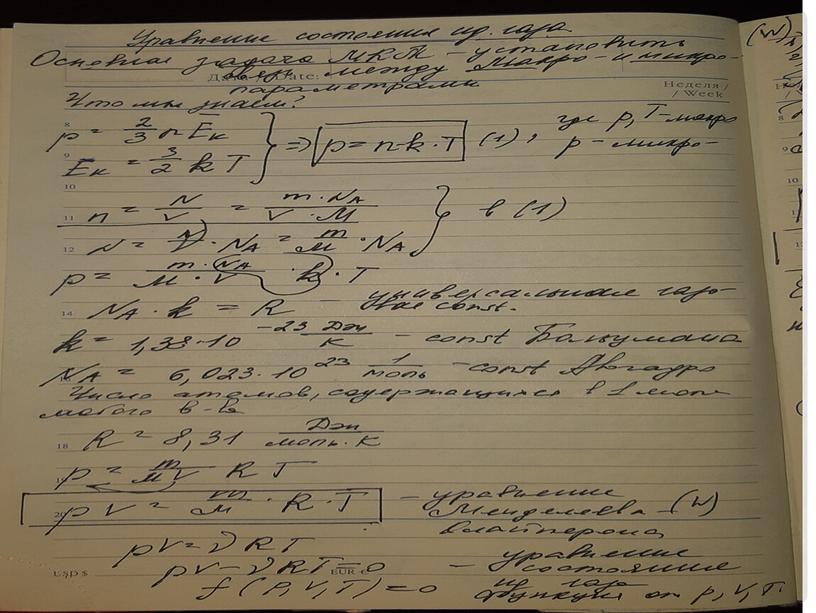 Уравнение состояния ид. газа
Основная задача МКТ - установить
Date:
связь между макро- и микро-
параметрами
Неделя /
/ Week
Что мы знаем?
8 p = 2/3 n Ēк
9 Ēк = 3/2 k T } ⇒ p = n·k·T (1), где p, T - макро
p - микро-
10
11 n = N/V = m·NA / V·M
12 N = ν·NA = m/M · NA } в (1)
p = m·NA / M·V · k·T
14 NA·k = R - универсальная газо-
вая const.
k = 1,38·10^-23 Дж/К - const Больцмана
NA = 6,023·10^23 1/моль - const Авогадро
Число атомов, содержащихся в 1 моле
любого в-ва
18 R = 8,31 Дж/моль·К
p = m/MV RT
20 pV = m/M · R·T - уравнение
Менделеева - (W)
Клайперона
pV = νRT
pV - νRT = 0 - уравнение
состояния
f(P,V,T) = 0 ид. газа
функция от p, V, T.